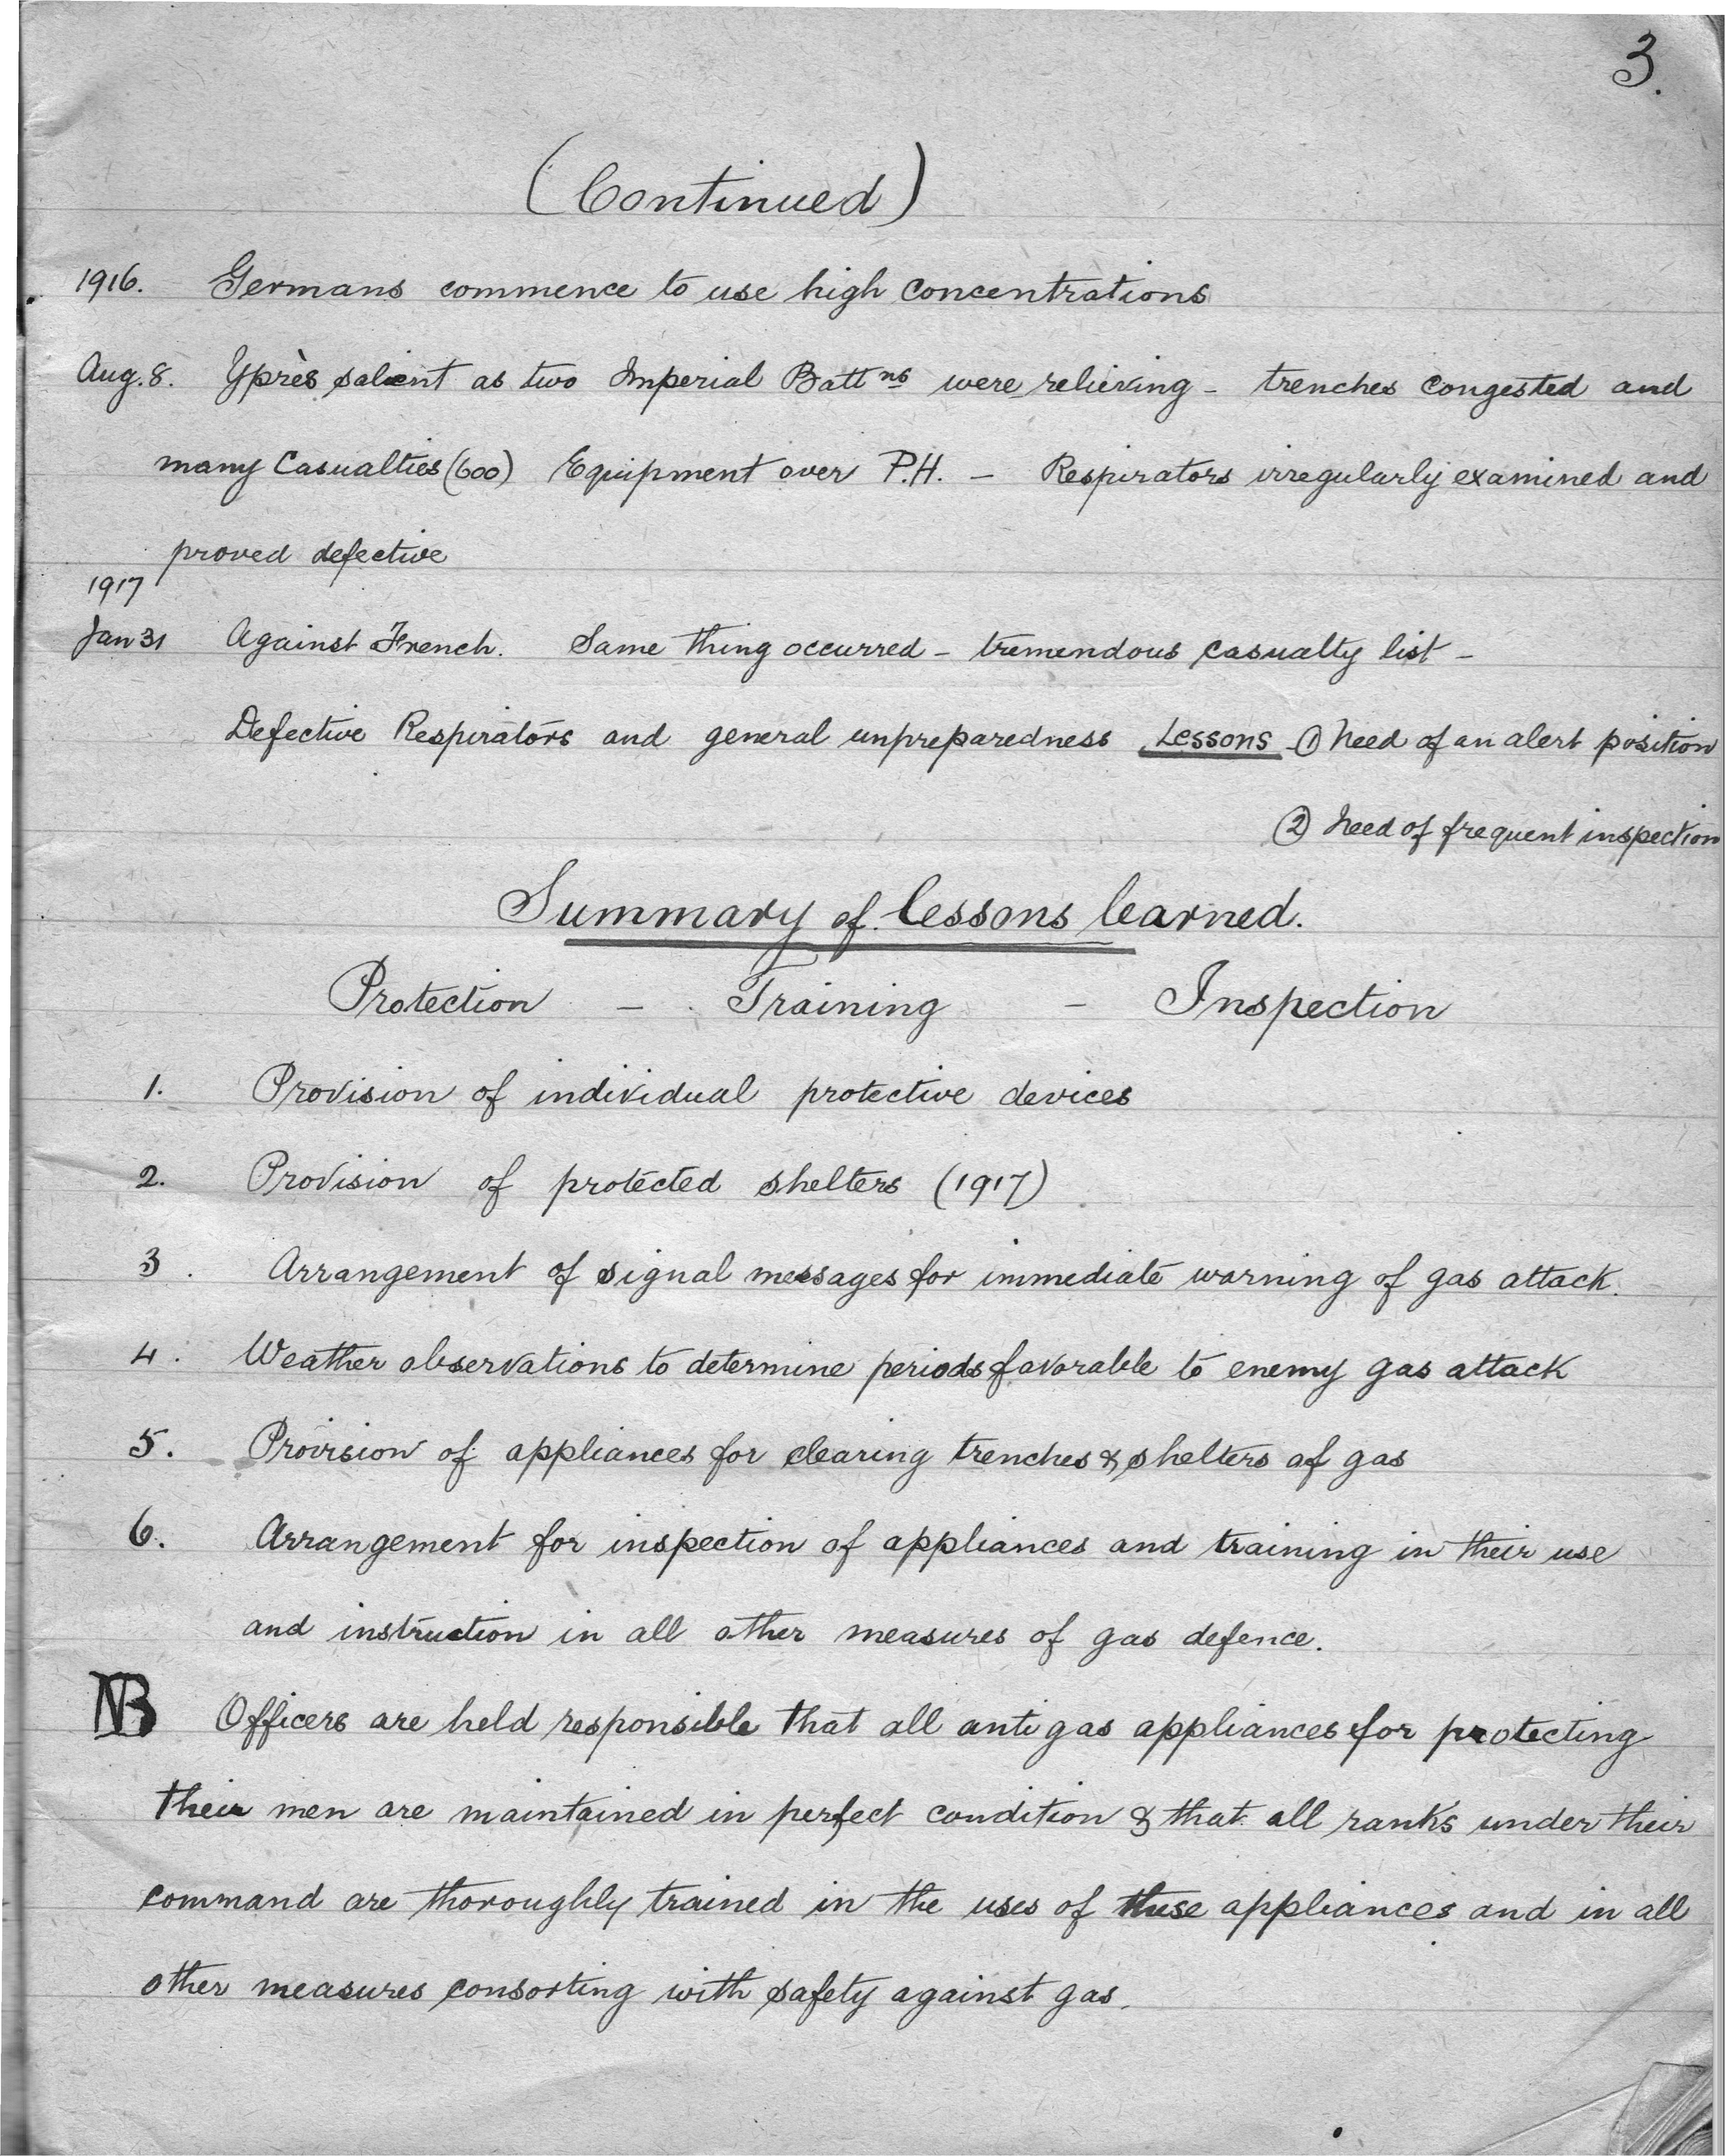 3.
(Continued)
1916. Germans commence to use high concentrations
Aug. 8. Yprès salient as two Imperial Battns were relieving – trenches congested and
many Casualties (600) Equipment over P.H. – Respirators irregularly examined and
proved defective
1917
Jan 31 Against French. Same thing occurred – tremendous casualty list –
Defective Respirators and general unpreparedness Lessons – ① Need of an alert position
② Need of frequent inspection
Summary of lessons learned.
Protection – Training – Inspection
1. Provision of individual protective devices
2. Provision of protected shelters (1917)
3. Arrangement of signal messages for immediate warning of gas attack.
4. Weather observations to determine periods favorable to enemy gas attack
5. Provision of appliances for clearing trenches & shelters of gas
6. Arrangement for inspection of appliances and training in their use
and instruction in all other measures of gas defence.
NB Officers are held responsible that all anti gas appliances for protecting
their men are maintained in perfect condition & that all ranks under their
command are thoroughly trained in the uses of these appliances and in all
other measures consorting with safety against gas.